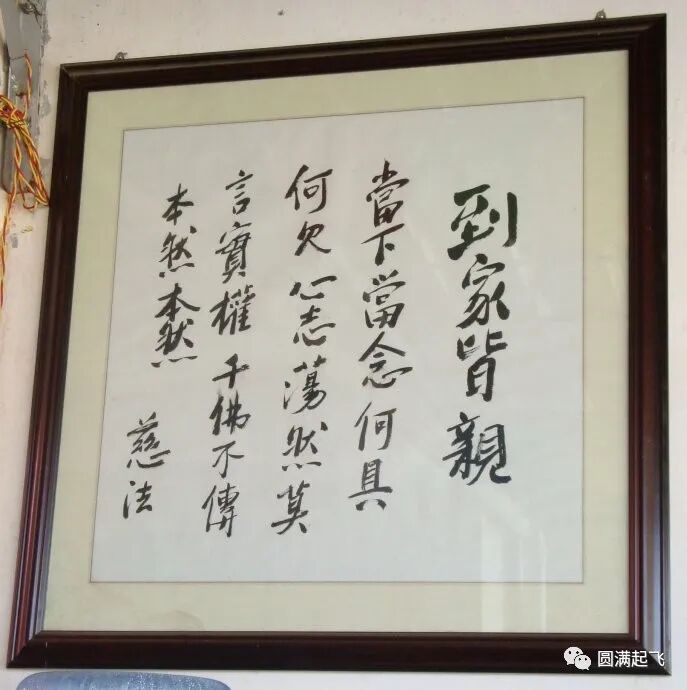 到家皆親
當下當念何具
何欠心志蕩然莫
言實權千佛不傳
本然本然
慈法
圆满起飞